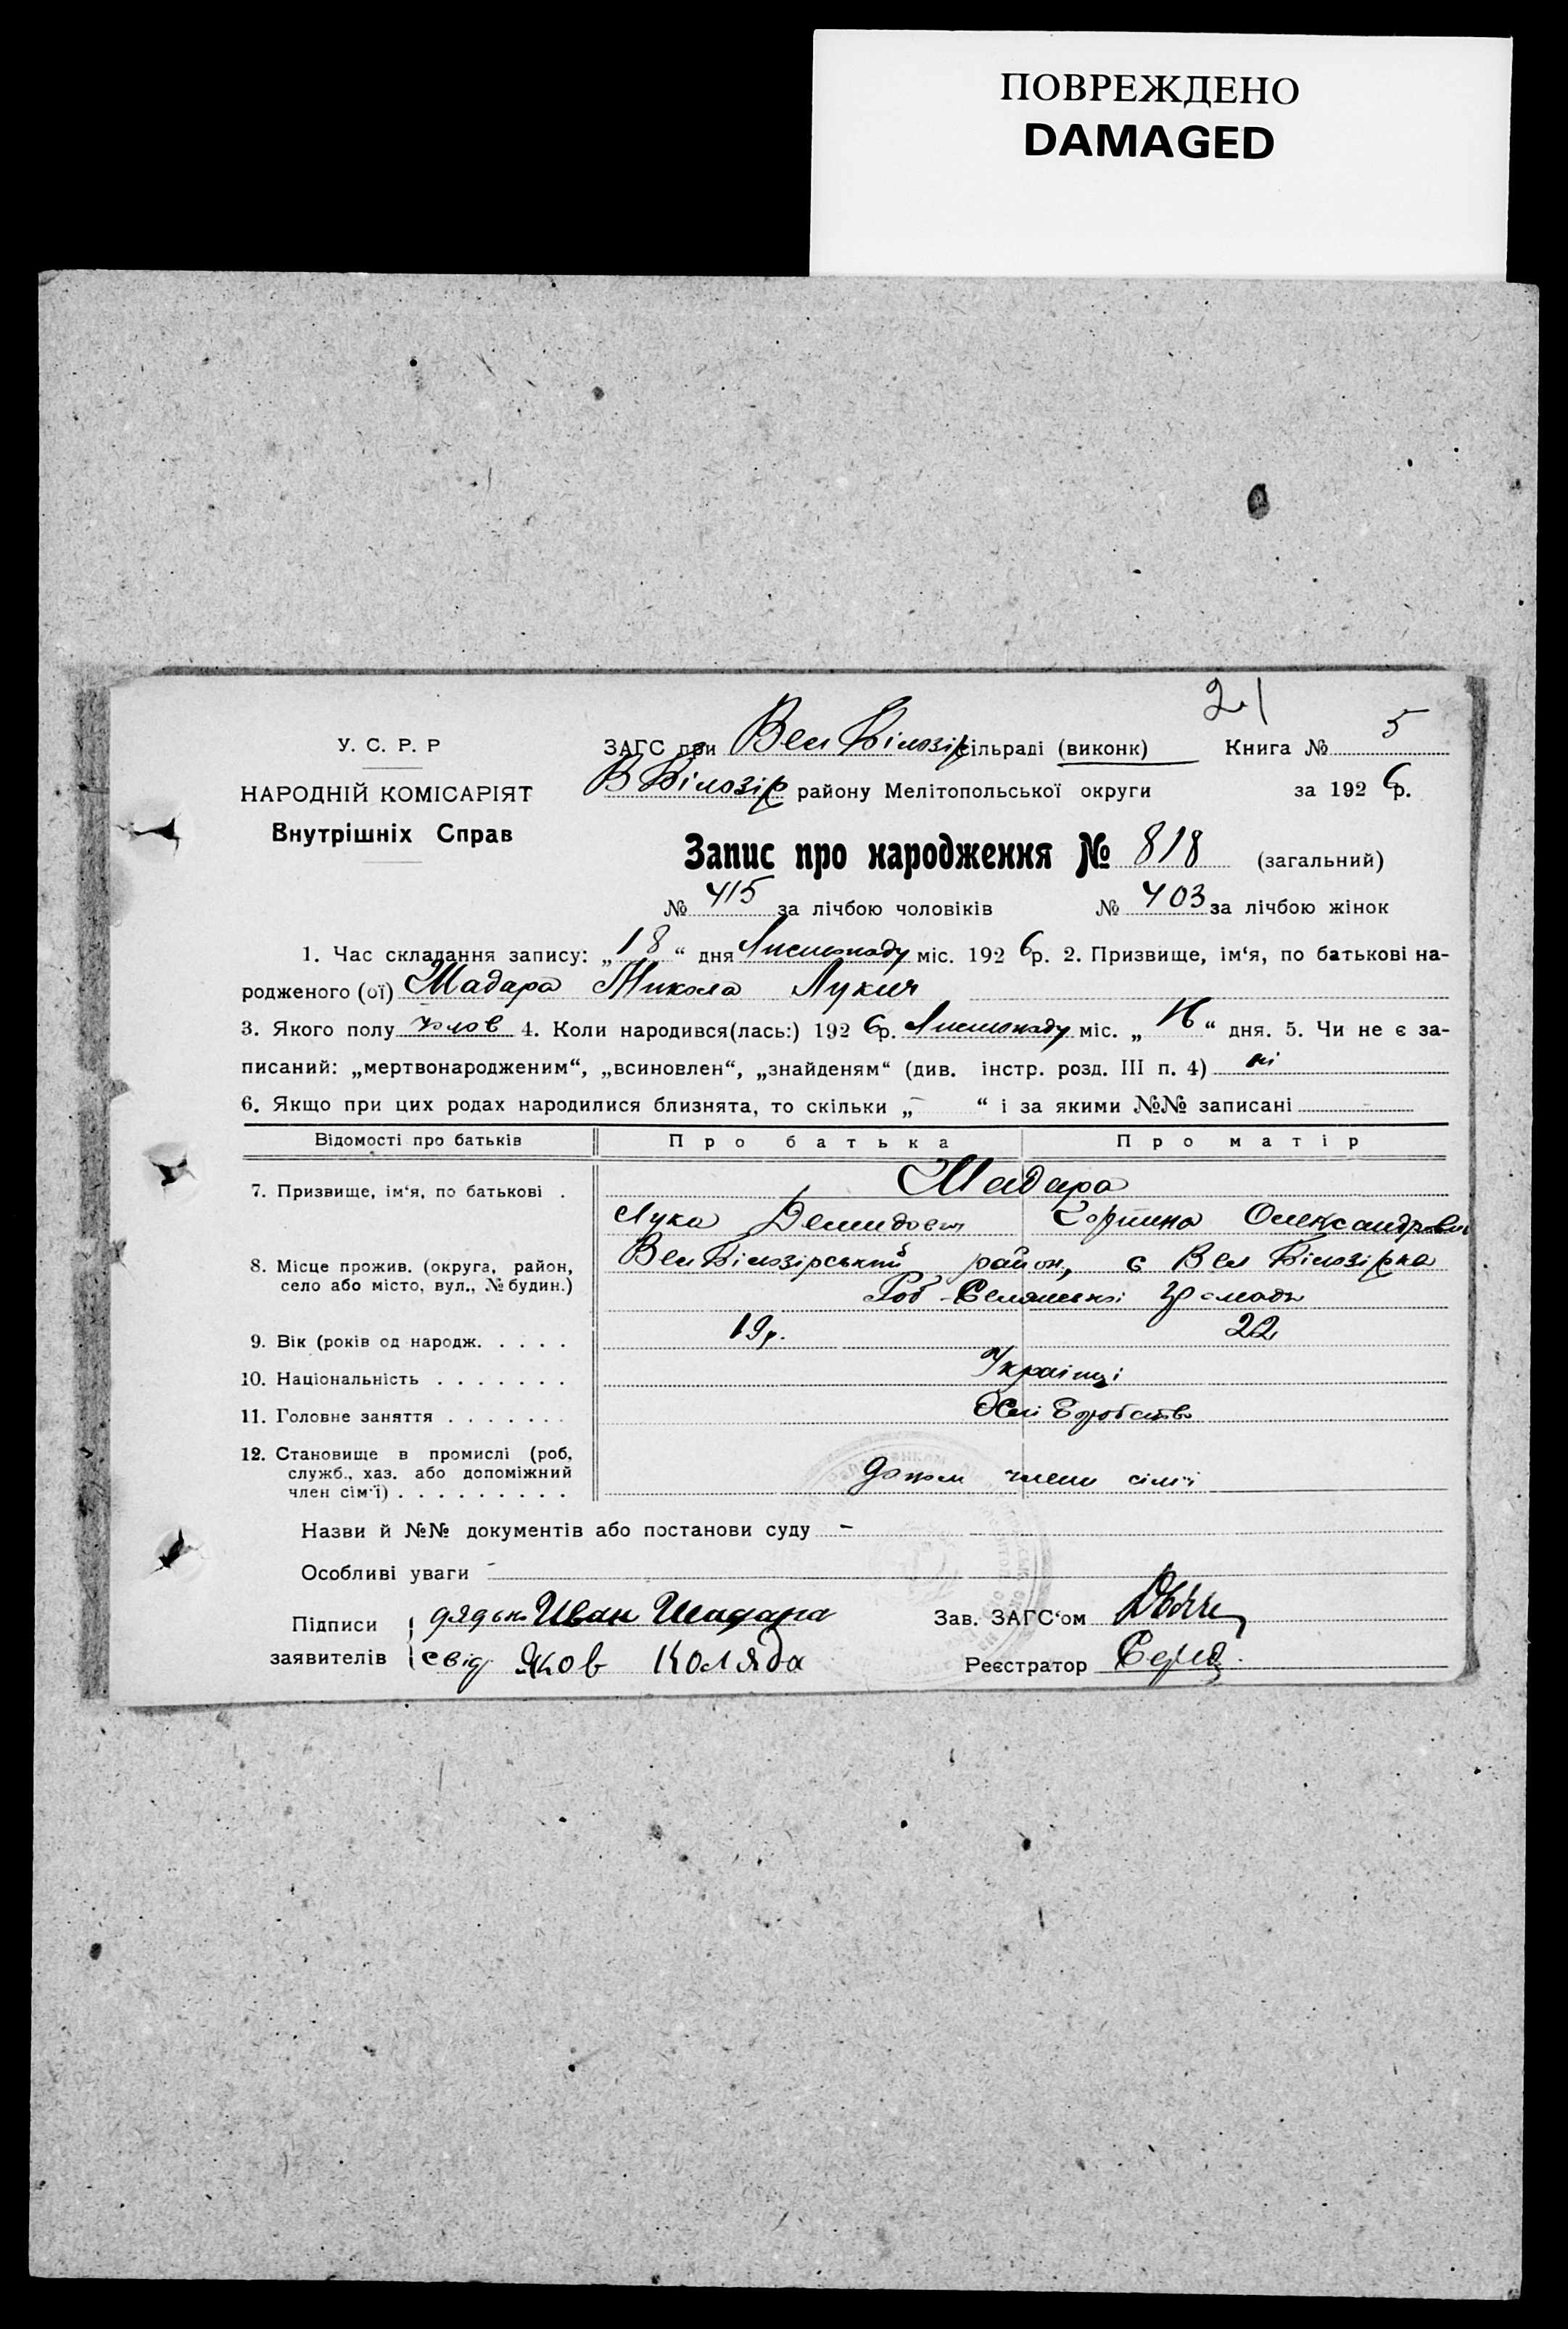 ПОВРЕЖДЕНО
DAMAGED
21
У. С. Р. Р
НАРОДНІЙ КОМІСАРІЯТ
Внутрішніх Справ
ЗАГС при Вел Білозір сільраді (виконк) Книга № 5
В Білозір району Мелітопольської округи за 1926 р.
Запис про народження № 818 (загальний)
№ 415 за лічбою чоловіків № 403 за лічбою жінок
1. Час складання запису: „18“ дня Листопаду міс. 1926 р. 2. Призвище, ім‘я, по батькові на-
родженого (ої) Шадара Микола Лукич
3. Якого полу чолов 4. Коли народився(лась:) 1926 р. Листопаду міс. „16“ дня. 5. Чи не є за-
писаний: „мертвонародженим“, „всиновлен“, „знайденям“ (див. інстр. розд. III п. 4) ні
6. Якщо при цих родах народилися близнята, то скільки „–“ і за якими №№ записані
Відомості про батьків Про батька Про матір
7. Призвище, ім‘я, по батькові . Шадара
Лука Демидович Олександровн
8. Місце прожив. (округа, район, Вел Білозірський район, с Вел Білозірка
село або місто, вул., № будин.) Роб-Селянської громади
9. Вік (років од народж. . . . . 19р. 22
10. Національність . . . . . . . Українці
11. Головне заняття . . . . . . Хліборобство
12. Становище в промислі (роб,
служб., хаз. або допоміжний допом члени сім'ї
член сім‘ї) . . . . . . . . .
Назви й №№ документів або постанови суду –
Особливі уваги –
Підписи дядько Иван Шадара Зав. ЗАГС‘ом
заявителів свід Яков Коляда Реєстратор